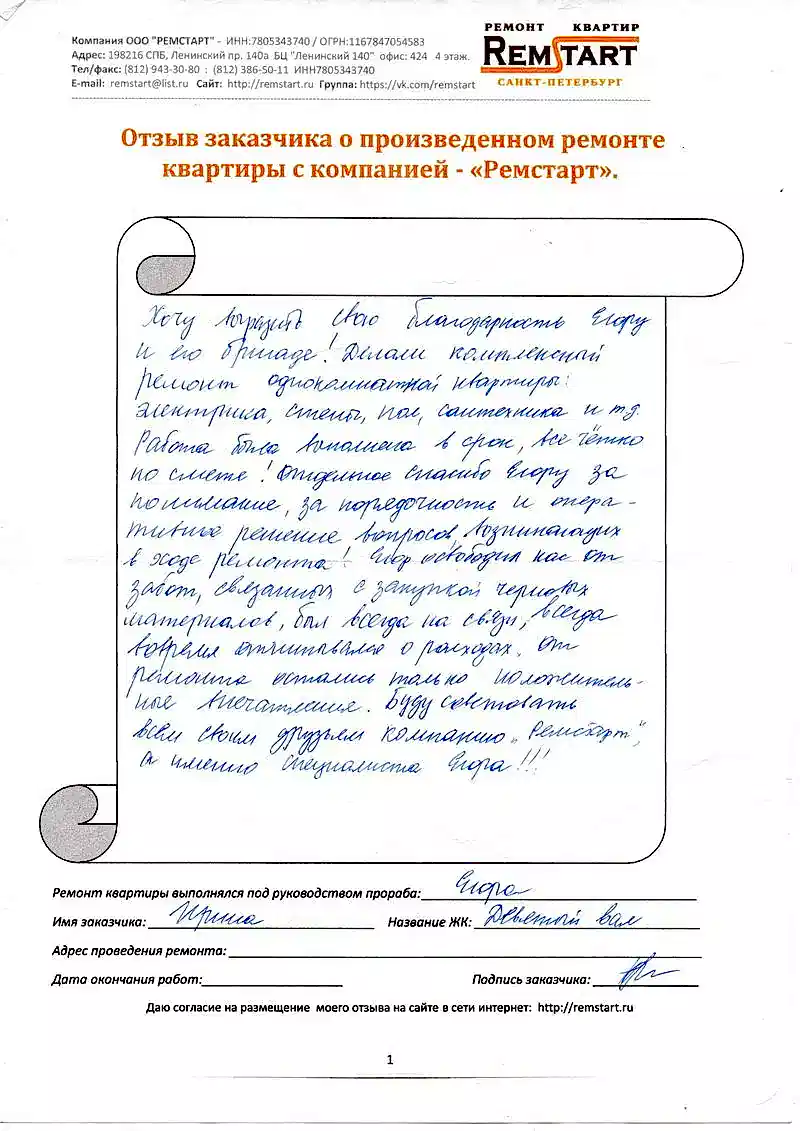 Компания ООО "РЕМСТАРТ" - ИНН:7805343740 / ОГРН:1167847054583
Адрес: 198216 СПБ, Ленинский пр. 140а БЦ "Ленинский 140" офис: 424 4 этаж.
Тел/факс: (812) 943-30-80 : (812) 386-50-11 ИНН7805343740
E-mail: remstart@list.ru Сайт: http://remstart.ru Группа: https://vk.com/remstart
РЕМОНТ КВАРТИР
REMSTART
САНКТ-ПЕТЕРБУРГ
Отзыв заказчика о произведенном ремонте
квартиры с компанией - «Ремстарт».
Хочу выразить свою благодарность Егору
и его бригаде! Делали комплексный
ремонт однокомнатной квартиры:
электрика, стены, пол, сантехника и т.д.
Работа была выполнена в срок, все чётко
по смете! Отдельное спасибо Егору за
понимание, за порядочность и опера-
тивное решение вопросов, возникающих
в ходе ремонта! Егор освободил нас от
забот, связанных с закупкой черновых
материалов, был всегда на связи, всегда
вовремя отчитывался о расходах. От
ремонта остались только положитель-
ные впечатления. Буду советовать
всем своим друзьям компанию „Ремстарт",
а именно специалиста Егора!!!
Ремонт квартиры выполнялся под руководством прораба: Егора
Имя заказчика: Ирина Название ЖК: Девятый вал
Адрес проведения ремонта:
Дата окончания работ: Подпись заказчика:
Даю согласие на размещение моего отзыва на сайте в сети интернет: http://remstart.ru
1